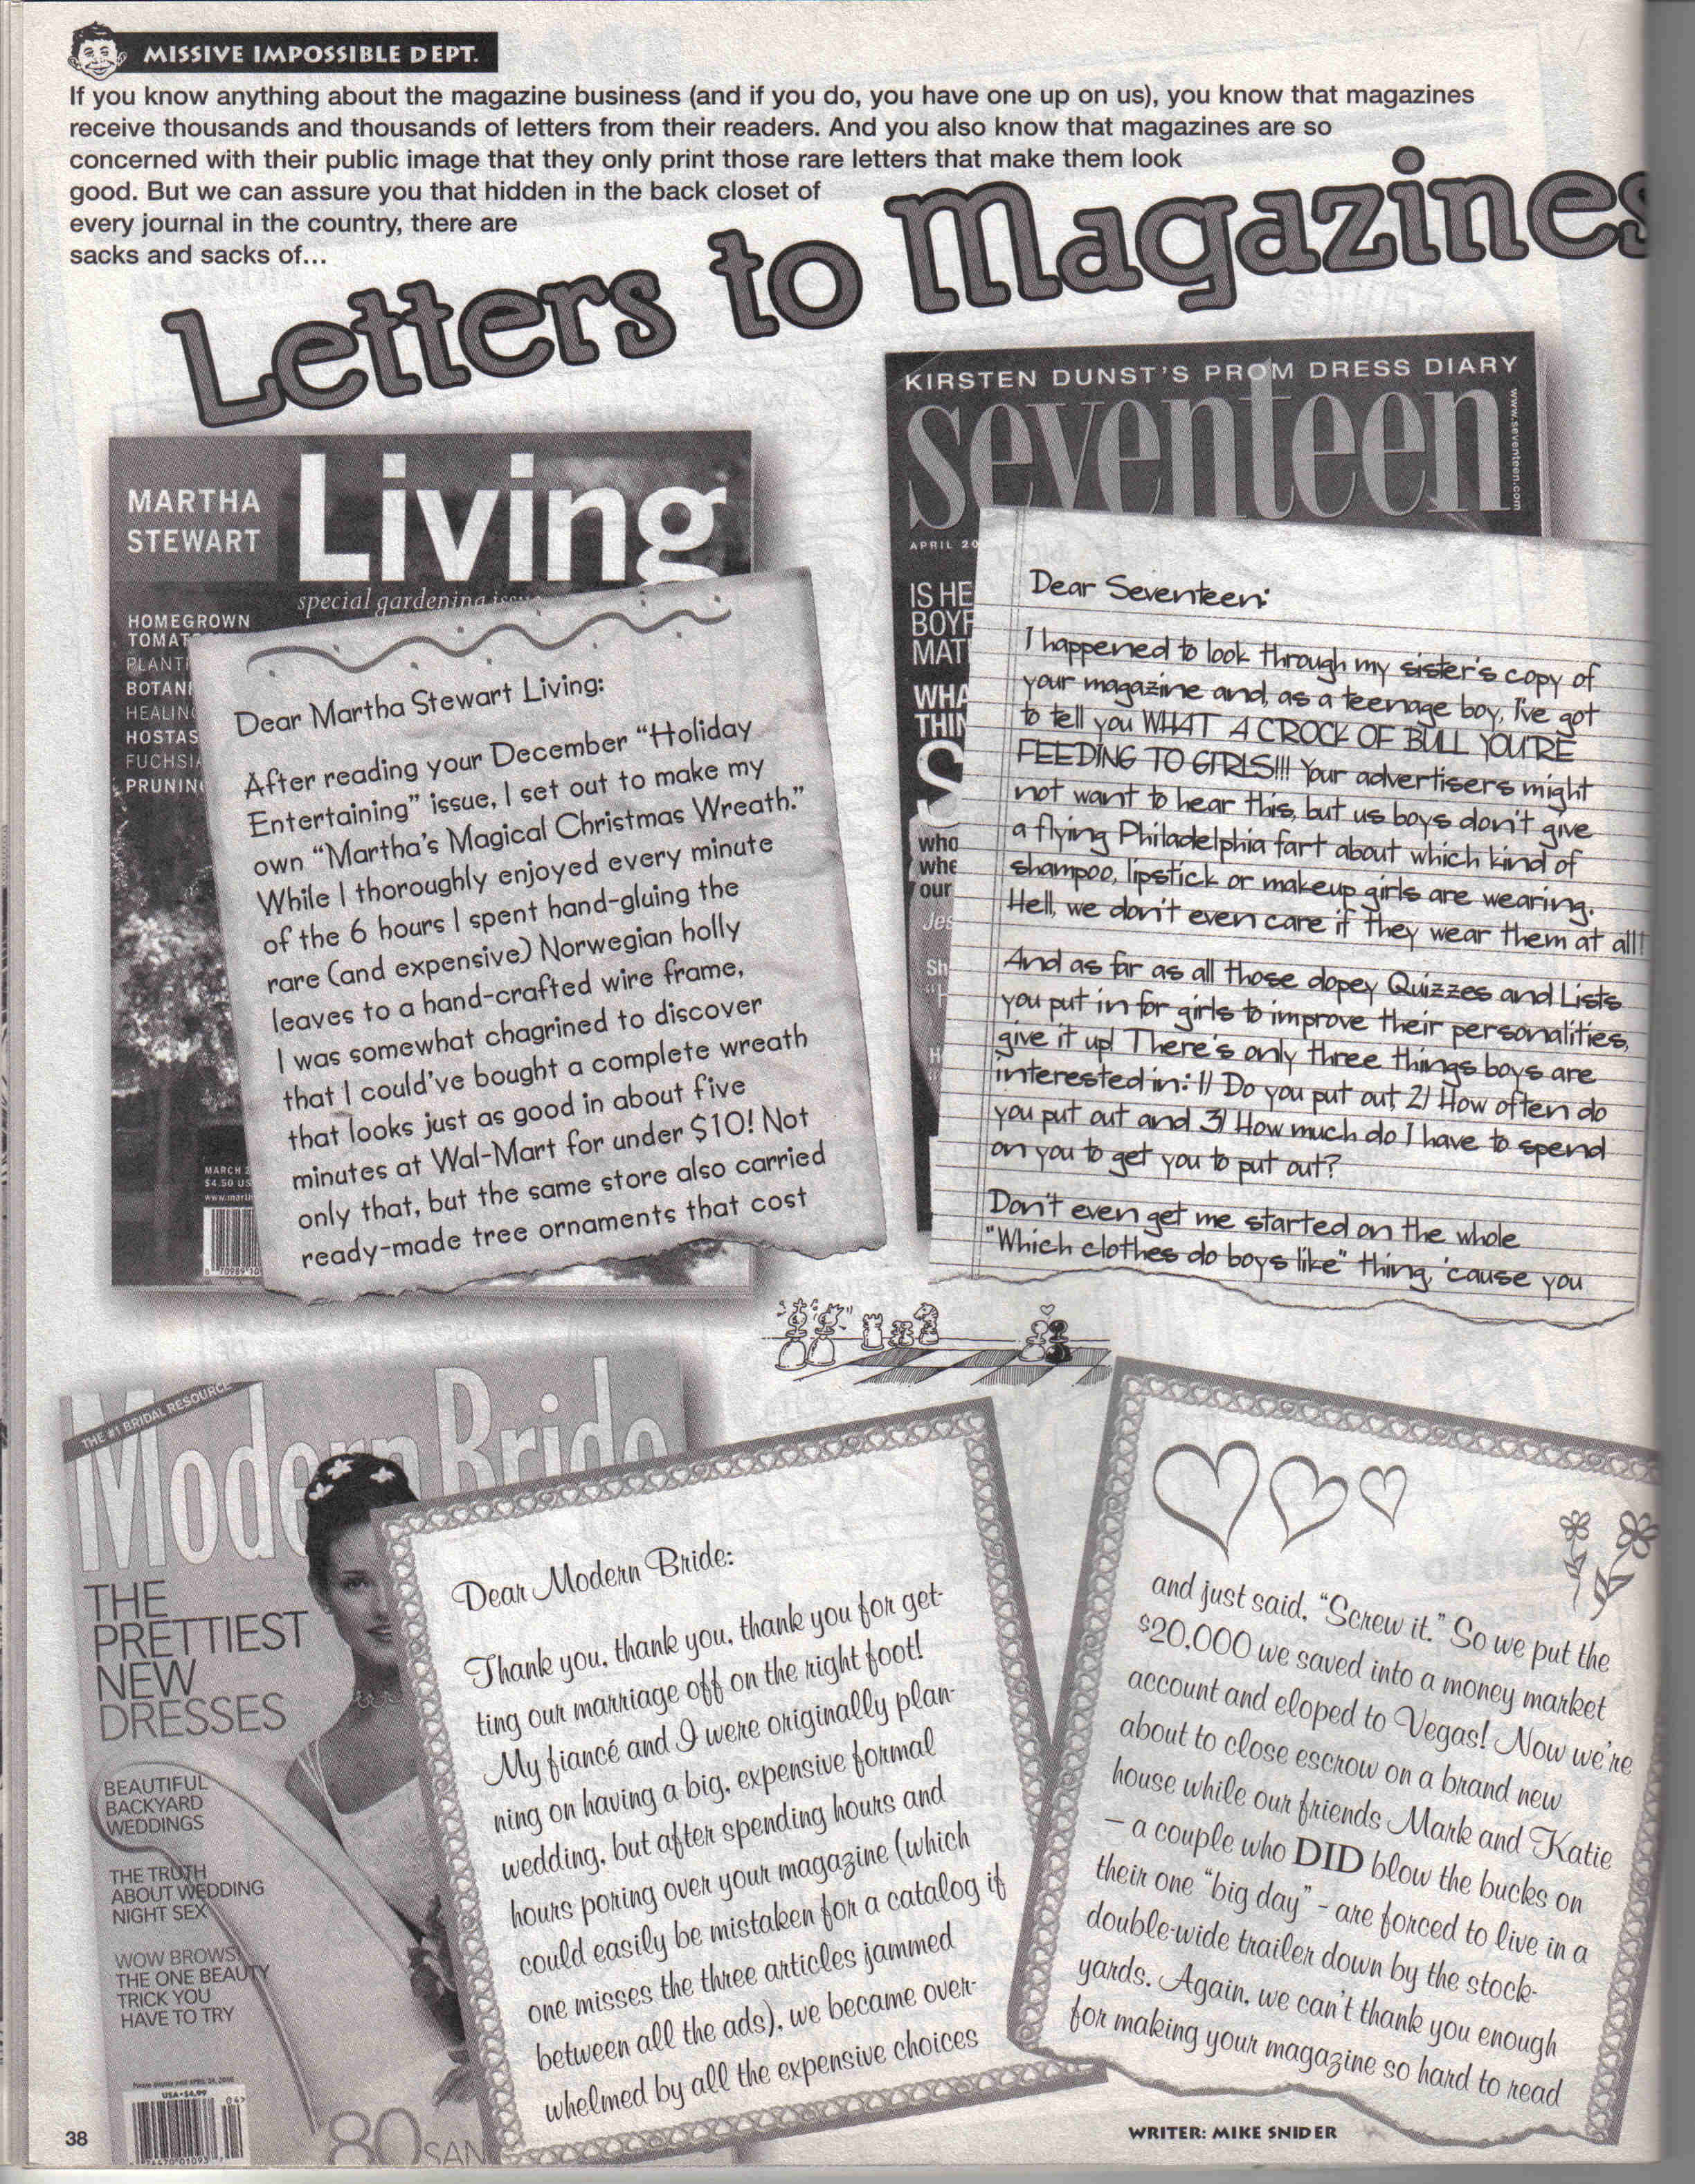 MISSIVE IMPOSSIBLE DEPT.
If you know anything about the magazine business (and if you do, you have one up on us), you know that magazines
receive thousands and thousands of letters from their readers. And you also know that magazines are so
concerned with their public image that they only print those rare letters that make them look
good. But we can assure you that hidden in the back closet of
every journal in the country, there are
sacks and sacks of...
Letters to Magazines
MARTHA
STEWART
Living
special gardening issue
HOMEGROWN
BOTANI
HOSTAS
MARCH
$4.50 US
Dear Martha Stewart Living:
After reading your December “Holiday
Entertaining” issue, I set out to make my
own “Martha’s Magical Christmas Wreath.”
While I thoroughly enjoyed every minute
of the 6 hours I spent hand-gluing the
rare (and expensive) Norwegian holly
leaves to a hand-crafted wire frame,
I was somewhat chagrined to discover
that I could’ve bought a complete wreath
that looks just as good in about five
minutes at Wal-Mart for under $10! Not
only that, but the same store also carried
ready-made tree ornaments that cost
KIRSTEN DUNST’S PROM DRESS DIARY
seventeen
www.seventeen.com
APRIL 20
IS HE
BOYF
MAT
WHA
THIN
S
who
whe
our
Jes
Sh
Dear Seventeen:
I happened to look through my sister’s copy of
your magazine and, as a teenage boy, I’ve got
to tell you WHAT A CROCK OF BULL YOU’RE
FEEDING TO GIRLS!!! Your advertisers might
not want to hear this, but us boys don’t give
a flying Philadelphia fart about which kind of
shampoo, lipstick or makeup girls are wearing.
Hell, we don’t even care if they wear them at all!
And as far as all those dopey Quizzes and Lists
you put in for girls to improve their personalities,
give it up! There’s only three things boys are
interested in: 1) Do you put out, 2) How often do
you put out and 3) How much do I have to spend
on you to get you to put out?
Don’t even get me started on the whole
“Which clothes do boys like” thing, ’cause you
THE #1 BRIDAL RESOURCE
Modern Bride
THE
PRETTIEST
NEW
DRESSES
BEAUTIFUL
BACKYARD
WEDDINGS
THE TRUTH
ABOUT WEDDING
NIGHT SEX
WOW BROWS!
THE ONE BEAUTY
TRICK YOU
HAVE TO TRY
USA•$4.99
80
SAN
Dear Modern Bride:
Thank you, thank you, thank you for get-
ting our marriage off on the right foot!
My fiancé and I were originally plan-
ning on having a big, expensive formal
wedding, but after spending hours and
hours poring over your magazine (which
could easily be mistaken for a catalog if
one misses the three articles jammed
between all the ads), we became over-
whelmed by all the expensive choices
and just said, “Screw it.” So we put the
$20,000 we saved into a money market
account and eloped to Vegas! Now we’re
about to close escrow on a brand new
house while our friends Mark and Katie
– a couple who DID blow the bucks on
their one “big day” – are forced to live in a
double-wide trailer down by the stock-
yards. Again, we can’t thank you enough
for making your magazine so hard to read
38
WRITER: MIKE SNIDER